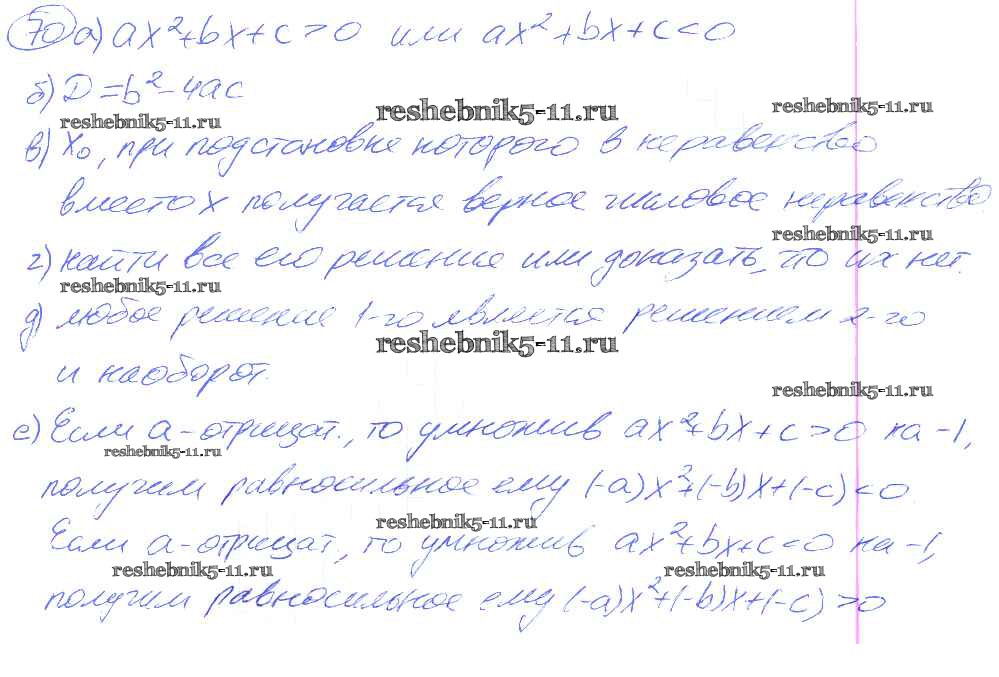 70 а) ax²+bx+c>0 или ax²+bx+c<0
б) D=b²-4ac
reshebnik5-11.ru reshebnik5-11.ru reshebnik5-11.ru
в) x₀, при подстановке которого в неравенство
вместо x получается верное числовое неравенство.
reshebnik5-11.ru
г) найти все его решение или доказать, что их нет.
reshebnik5-11.ru
д) любое решение 1-го является решением 2-го
reshebnik5-11.ru
и наоборот.
reshebnik5-11.ru
е) Если а-отрицат., то умножив ax²+bx+c>0 на -1,
reshebnik5-11.ru
получим равносильное ему (-a)x²+(-b)x+(-c)<0
reshebnik5-11.ru
Если а-отрицат, то умножив ax²+bx+c<0 на -1,
reshebnik5-11.ru reshebnik5-11.ru
получим равносильное ему (-a)x²+(-b)x+(-c)>0